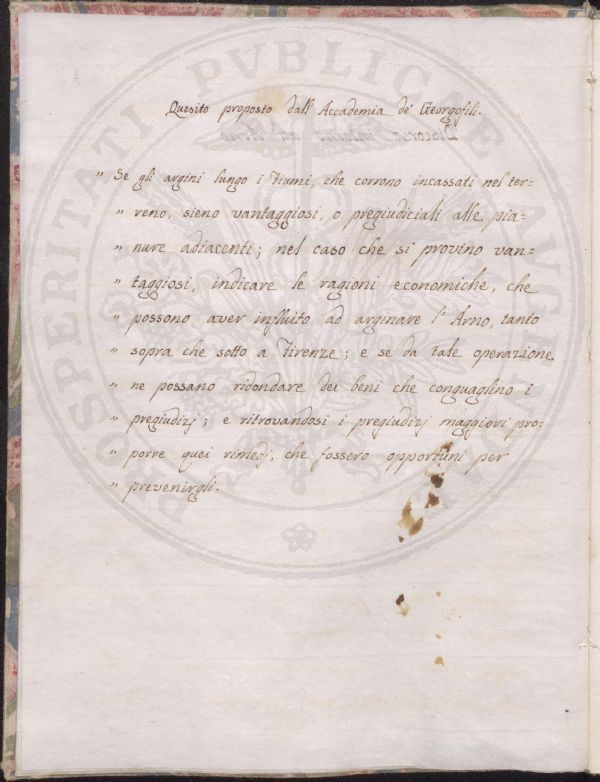 Quesito proposto dall' Accademia de' Georgofili.
„ Se gli argini lungo i Fiumi, che corrono incassati nel ter=
„ reno, sieno vantaggiosi, o pregiudiciali alle pia=
„ nure adiacenti; nel caso che si provino van=
„ taggiosi, indicare le ragioni economiche, che
„ possono aver influito ad arginare l' Arno, tanto
„ sopra che sotto a Firenze; e se da tale operazione
„ ne possano ridondare dei beni che conguaglino i
„ pregiudizj; e ritrovandosi i pregiudizj maggiori pro=
„ porre quei rimedj, che fossero opportuni per
„ prevenirgli.
PROSPERITATI PUBLICAE AUGENDAE